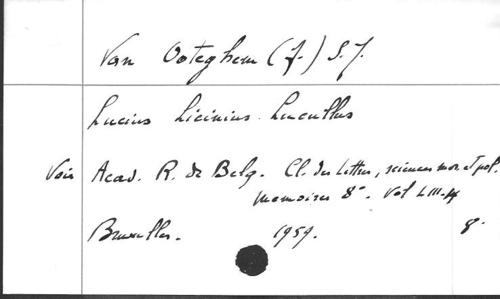 Van Ooteghem (J.) S.J.
Lucius Licinius Lucullus
Vois Acad. R. de Belg. Cl. des lettres, sciences mor. et pol.
Memoires 8°. Vol LIII-4
Bruxelles. 1959. 8°